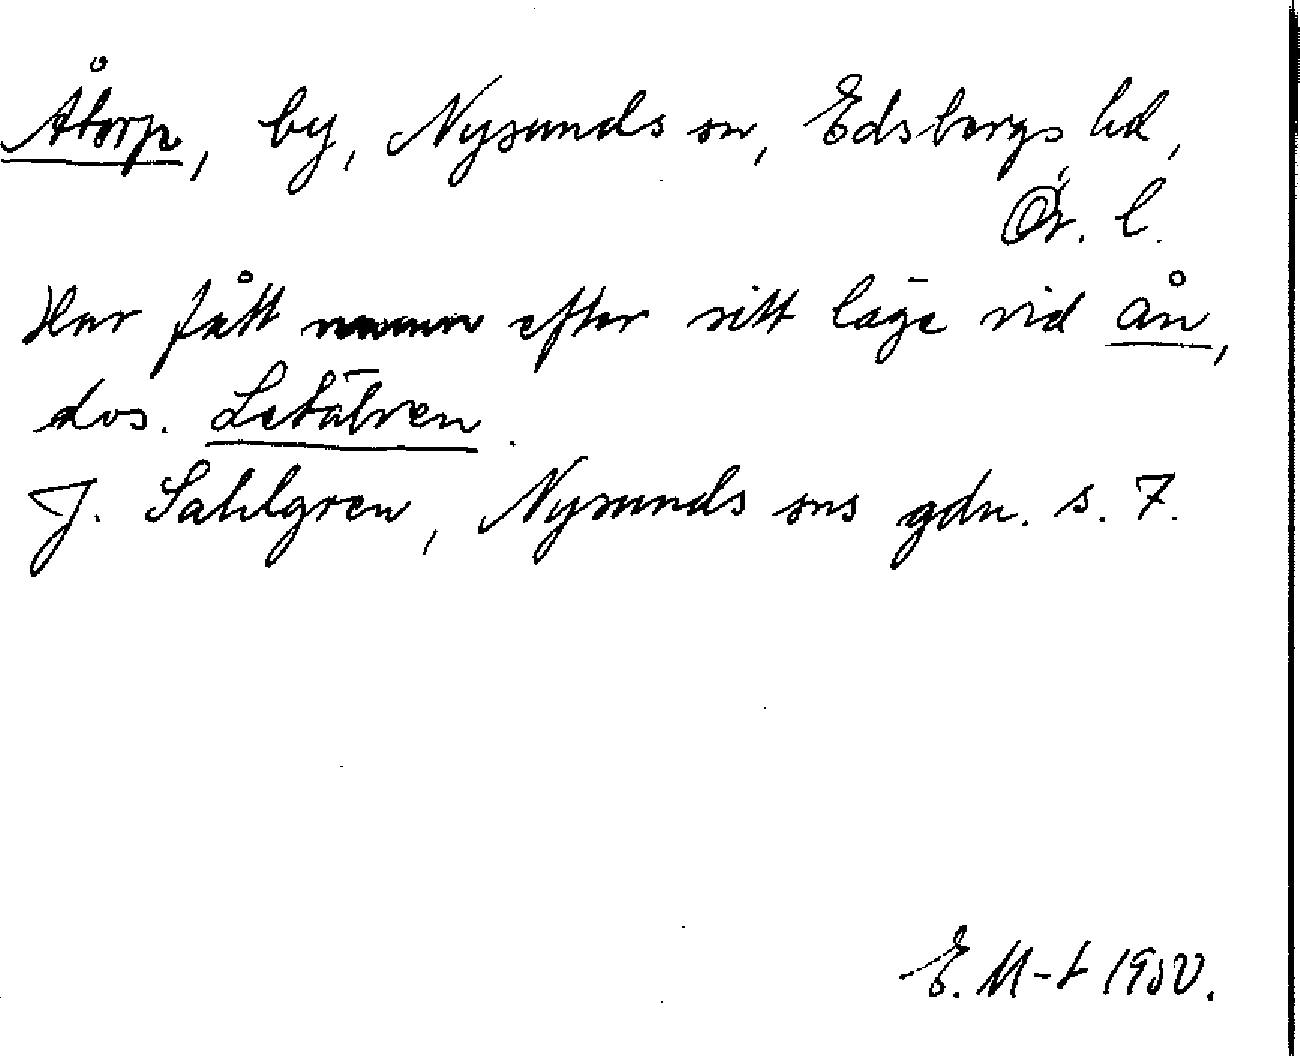 Åtorp, by, Nysunds sn, Edsbergs hd,
Ör. l.
Har fått namn efter sitt läge vid ån,
dvs. Letälven.
J. Sahlgren, Nysunds sns gdn. s. 7.
E. M-t 1950.